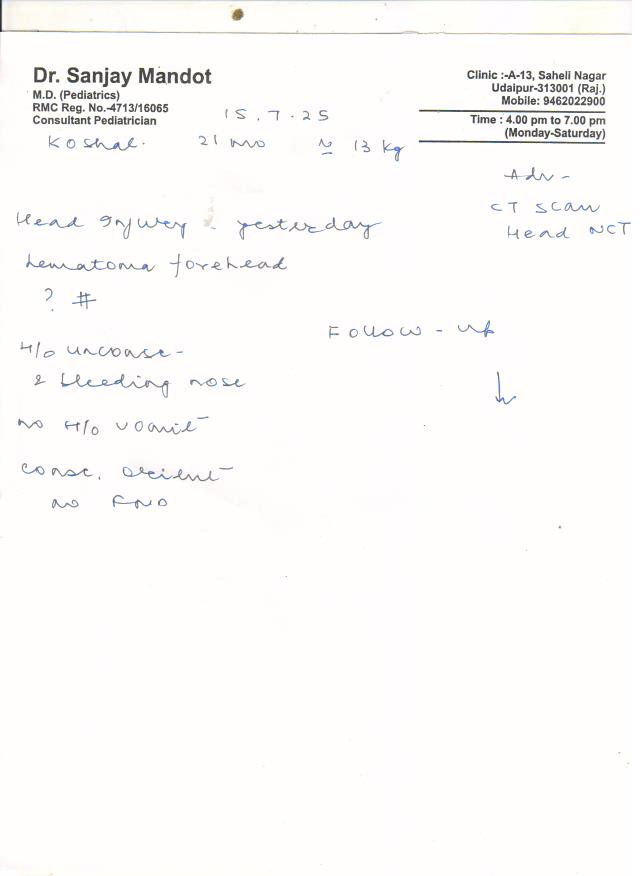 Dr. Sanjay Mandot
M.D. (Pediatrics)
RMC Reg. No.-4713/16065
Consultant Pediatrician
Clinic :-A-13, Saheli Nagar
Udaipur-313001 (Raj.)
Mobile: 9462022900
Time : 4.00 pm to 7.00 pm
(Monday-Saturday)
15.7.25
Koshal. 21 mo 13 kg
Adv -
CT Scan
Head NCT
Head Injury - yesterday
hematoma forehead
? #
Follow - up
H/o unconsc -
& bleeding nose
no H/o vomit
consc. orient
no FND